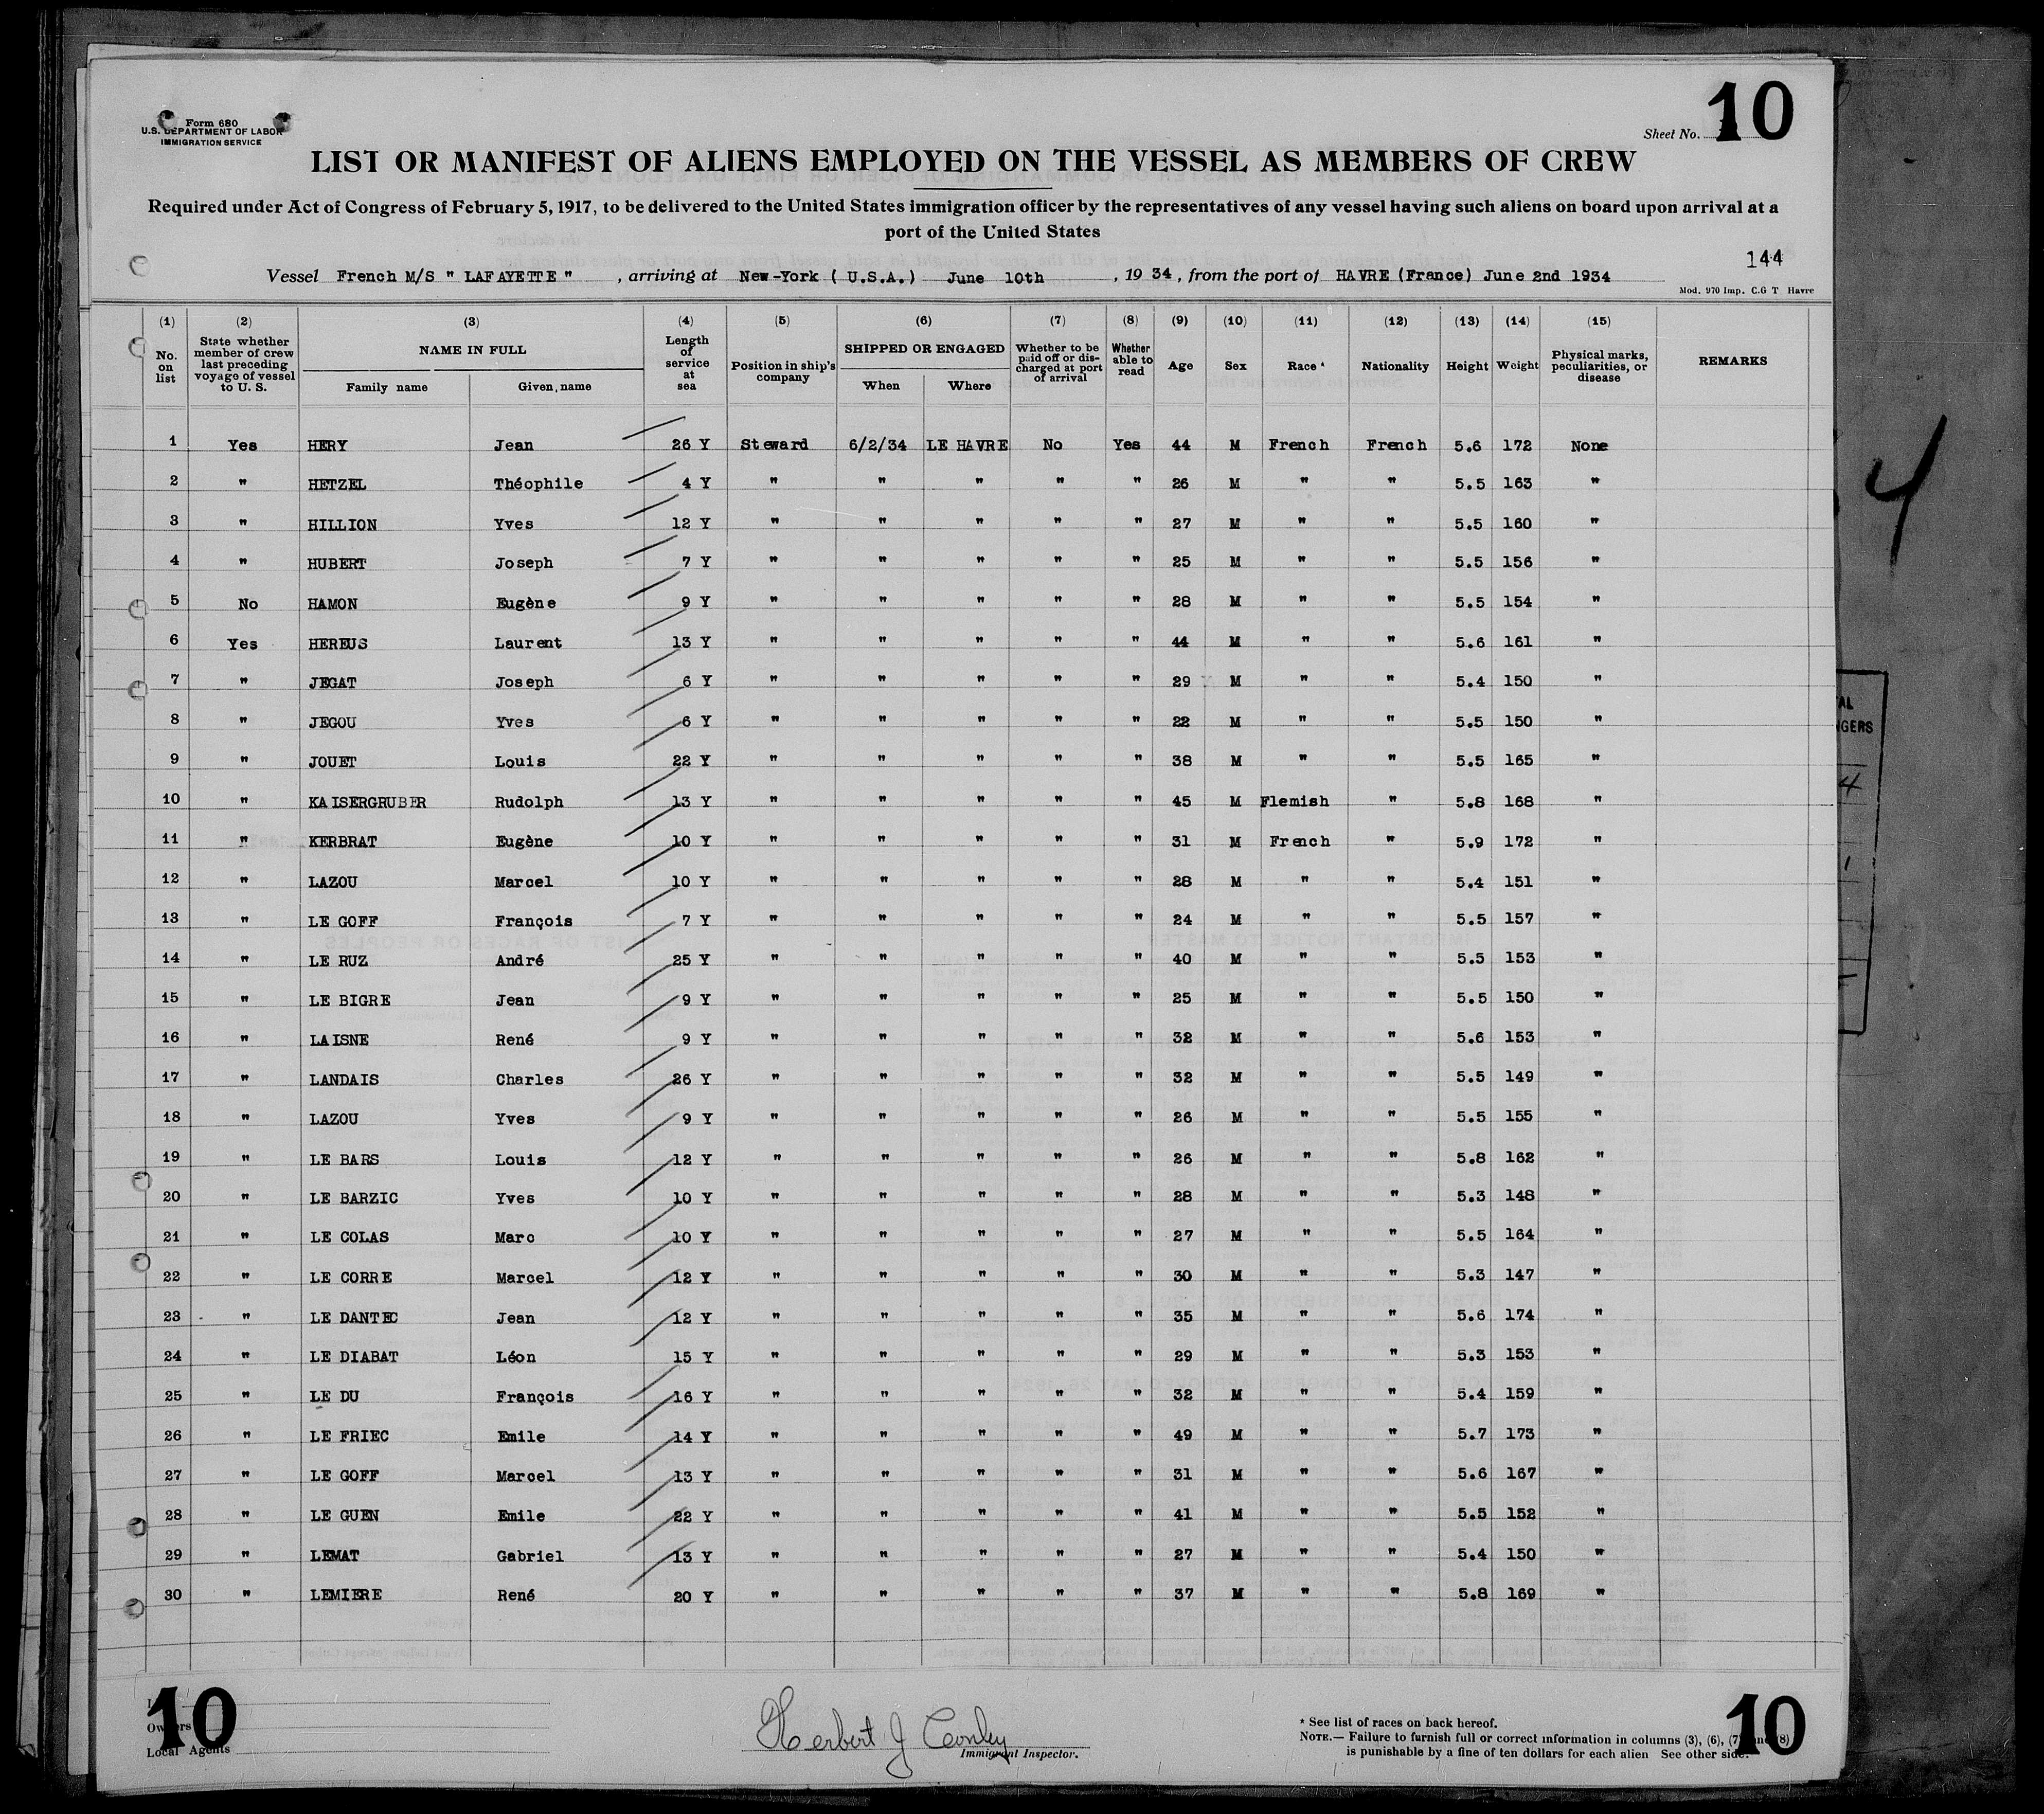 10
Form 680
U.S. DEPARTMENT OF LABOR
IMMIGRATION SERVICE
Sheet No.
LIST OR MANIFEST OF ALIENS EMPLOYED ON THE VESSEL AS MEMBERS OF CREW
Required under Act of Congress of February 5, 1917, to be delivered to the United States immigration officer by the representatives of any vessel having such aliens on board upon arrival at a
port of the United States
144
Vessel French M/S " LAFAYETTE " , arriving at New-York ( U.S.A.) June 10th , 19 34 , from the port of HAVRE (France) June 2nd 1934
Mod. 970 Imp. C.G T Havre
(1) (2) (3) (4) (5) (6) (7) (8) (9) (10) (11) (12) (13) (14) (15)
No. on list State whether member of crew last preceding voyage of vessel to U. S. NAME IN FULL Family name Given name Length of service at sea Position in ship's company SHIPPED OR ENGAGED When Where Whether to be paid off or discharged at port of arrival Whether able to read Age Sex Race * Nationality Height Weight Physical marks, peculiarities, or disease REMARKS
1 Yes HERY Jean 26 Y Steward 6/2/34 LE HAVRE No Yes 44 M French French 5.6 172 None
2 " HETZEL Théophile 4 Y " " " " " 26 M " " 5.5 163 "
3 " HILLION Yves 12 Y " " " " " 27 M " " 5.5 160 "
4 " HUBERT Joseph 7 Y " " " " " 25 M " " 5.5 156 "
5 No HAMON Eugène 9 Y " " " " " 28 M " " 5.5 154 "
6 Yes HEREUS Laurent 13 Y " " " " " 44 M " " 5.6 161 "
7 " JEGAT Joseph 6 Y " " " " " 29 M " " 5.4 150 "
8 " JEGOU Yves 6 Y " " " " " 22 M " " 5.5 150 "
9 " JOUET Louis 22 Y " " " " " 38 M " " 5.5 165 "
10 " KAISERGRUBER Rudolph 13 Y " " " " " 45 M Flemish " 5.8 168 "
11 " KERBRAT Eugène 10 Y " " " " " 31 M French " 5.9 172 "
12 " LAZOU Marcel 10 Y " " " " " 28 M " " 5.4 151 "
13 " LE GOFF François 7 Y " " " " " 24 M " " 5.5 157 "
14 " LE RUZ André 25 Y " " " " " 40 M " " 5.5 153 "
15 " LE BIGRE Jean 9 Y " " " " " 25 M " " 5.5 150 "
16 " LAISNE René 9 Y " " " " " 32 M " " 5.6 153 "
17 " LANDAIS Charles 26 Y " " " " " 32 M " " 5.5 149 "
18 " LAZOU Yves 9 Y " " " " " 26 M " " 5.5 155 "
19 " LE BARS Louis 12 Y " " " " " 26 M " " 5.8 162 "
20 " LE BARZIC Yves 10 Y " " " " " 28 M " " 5.3 148 "
21 " LE COLAS Marc 10 Y " " " " " 27 M " " 5.5 164 "
22 " LE CORRE Marcel 12 Y " " " " " 30 M " " 5.3 147 "
23 " LE DANTEC Jean 12 Y " " " " " 35 M " " 5.6 174 "
24 " LE DIABAT Léon 15 Y " " " " " 29 M " " 5.3 153 "
25 " LE DU François 16 Y " " " " " 32 M " " 5.4 159 "
26 " LE FRIEC Emile 14 Y " " " " " 49 M " " 5.7 173 "
27 " LE GOFF Marcel 13 Y " " " " " 31 M " " 5.6 167 "
28 " LE GUEN Emile 22 Y " " " " " 41 M " " 5.5 152 "
29 " LEMAT Gabriel 13 Y " " " " " 27 M " " 5.4 150 "
30 " LEMIERE René 20 Y " " " " " 37 M " " 5.8 169 "
10
Owners
Local Agents
Herbert J Conley
Immigrant Inspector.
* See list of races on back hereof.
NOTE.— Failure to furnish full or correct information in columns (3), (6), (7) and (8)
is punishable by a fine of ten dollars for each alien See other side.
10
4